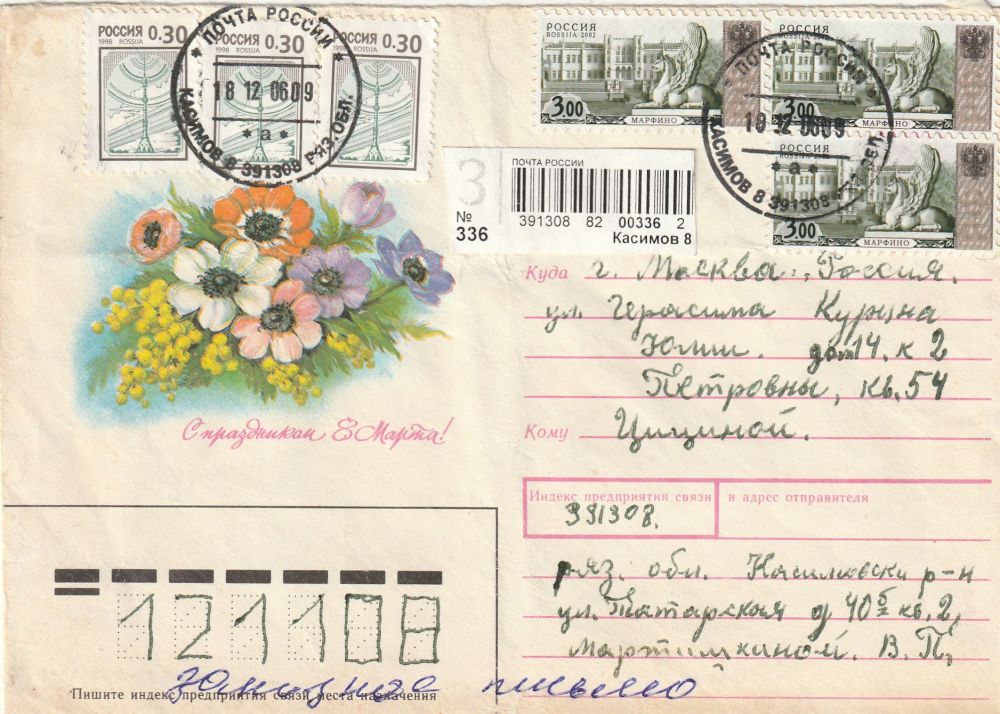 РОССИЯ 0.30
1998 ROSSIJA
РОССИЯ 0.30
1998 ROSSIJA
РОССИЯ 0.30
1998 ROSSIJA
ПОЧТА РОССИИ
18 12 06 09
* а *
КАСИМОВ 8 391308 РЯЗ. ОБЛ.
РОССИЯ
ROSSIJA 2002
3.00
МАРФИНО
РОССИЯ
ROSSIJA 2002
3.00
МАРФИНО
РОССИЯ
ROSSIJA 2002
3.00
МАРФИНО
ПОЧТА РОССИИ
18 12 06 09
* а *
КАСИМОВ 8 391308 ОБЛ.
3
№
336
ПОЧТА РОССИИ
391308 82 00336 2
Касимов 8
С праздником 8 Марта!
Куда г. Москва, Россия.
ул. Герасима Курина
Юлии. дом 14. к 2
Петровны, кв. 54
Кому Цициной.
Индекс предприятия связи и адрес отправителя
391308.
ряз. обл. Касимовски р-н
ул. Татарская д 40 б кв. 2,
Мартишкиной. В. П,
121108
заказное письмо
Пишите индекс предприятия связи места назначения